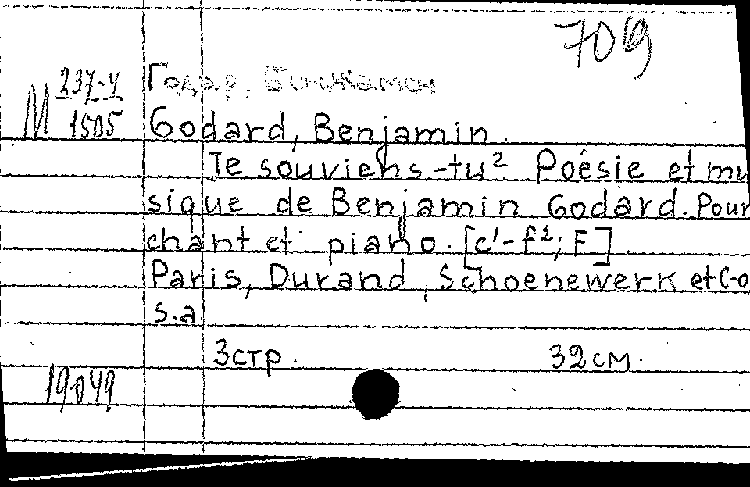 709
Годар, Бенжамен
М 237-4
1505
Godard, Benjamin.
Te souviens-tu? Poésie et mu
sique de Benjamin Godard. Pour
chant et piano. [c'-f²; F]
Paris, Durand, Schoenewerk et C-o
s.a
3стр. 32см.
19049